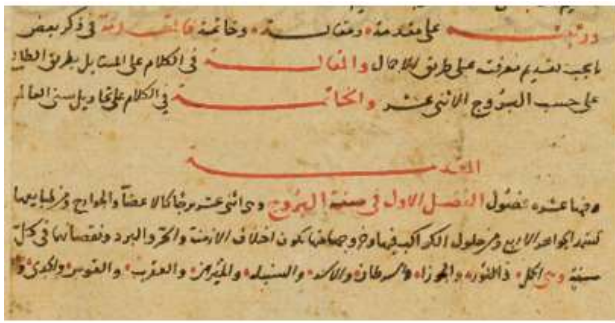 ورتبته على مقدمة ومقالة وخاتمة فالمقدمة في ذكر بعض
ما يجب تقديم معرفته على طريق الاجمال والمقالة في الكلام على المسايل بطريق
على حسب البروج الاثنى عشر والخاتمة في الكلام على تحاويل سنى العالم
المقدمة
وفيها عشره فصول الفصل الاول في البروج وهي اثنى عشر برجا كالاعضآ والجوارح
الاربع ومن حلول الكواكب فيها وخروجها عنها تكون اختلاف الازمنة والحر والبرد ونقصانها في كل
سنة وهي الحمل والثور والجوزا والسرطان والاسد والسنبله والميزان والعقرب والقوس والجدى